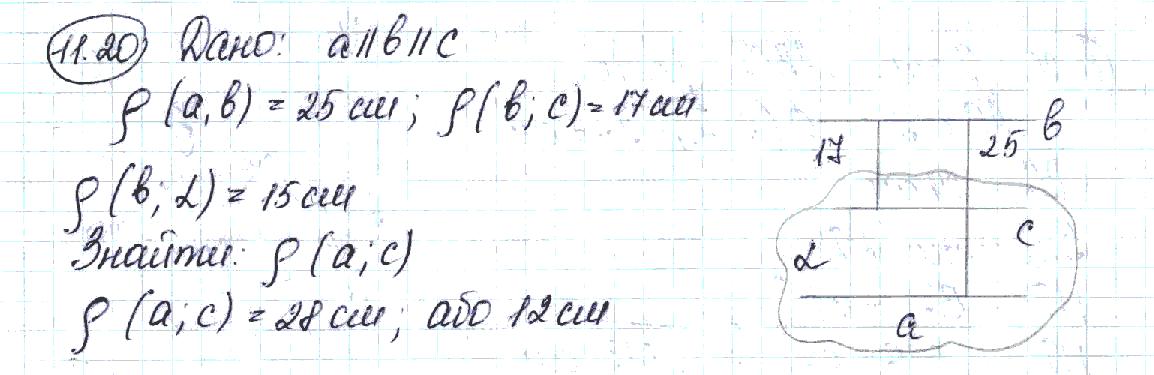 11.20 Дано: a||b||c
ρ(a,b) = 25 см; ρ(b; c) = 17 см
ρ(b; α) = 15 см
Знайти: ρ(a; c)
ρ(a; c) = 28 см; або 12 см
b
17 25
c
α
a